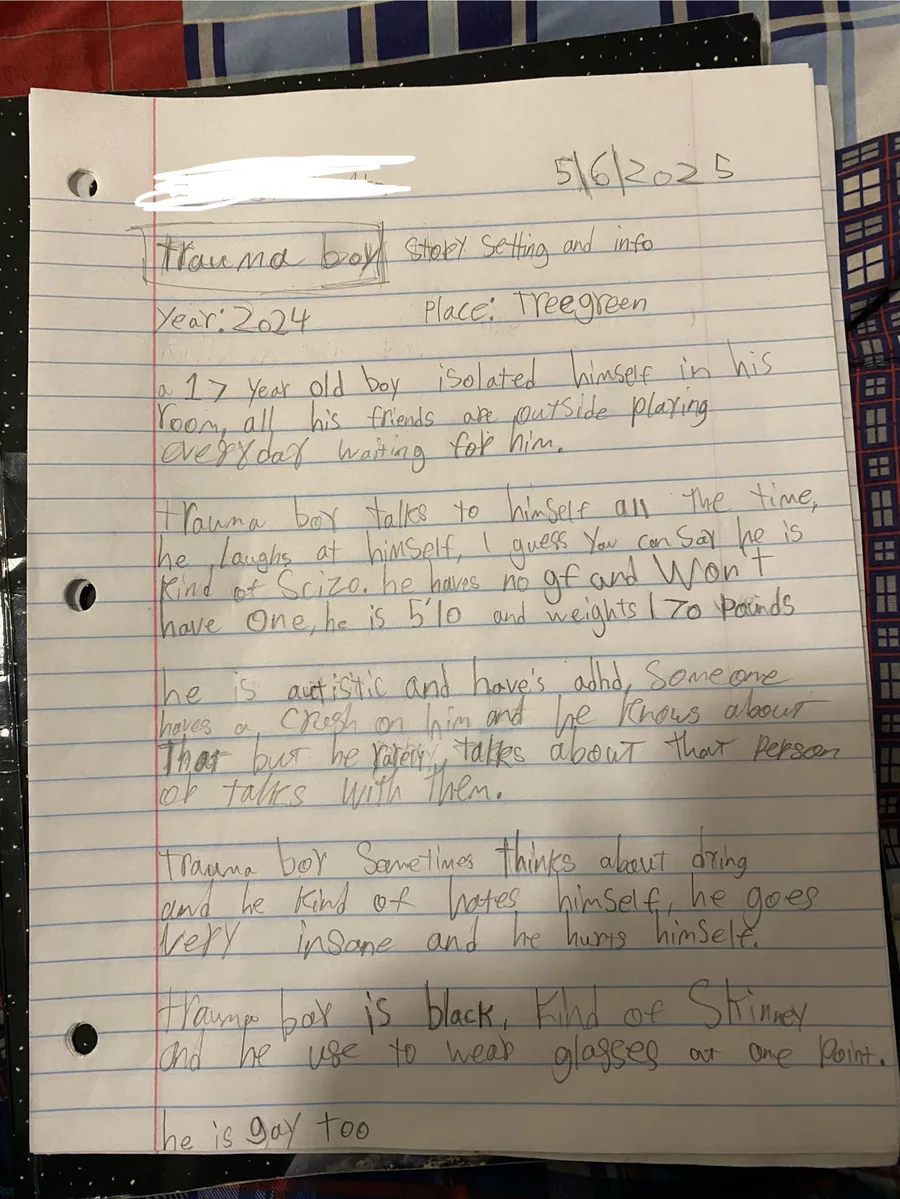 5/6/2025
trauma boy story setting and info
Year: 2024 Place: Treegreen
a 17 year old boy isolated himself in his
room, all his friends are outside playing
everyday waiting for him.
trauma boy talks to himself all the time,
he laughs at himself, I guess You can say he is
kind of Scizo. he haves no gf and Won't
have One, he is 5'10 and weights 170 pounds
he is autistic and have's adhd, Someone
haves a crush on him and he knows about
That but he rarely talks about that person
or talks with them.
trauma boy Sometimes thinks about dying
and he kind of hates himself, he goes
very insane and he hurts himself.
trauma boy is black, kind of Skinney
and he use to wear glasses at one point.
he is gay too